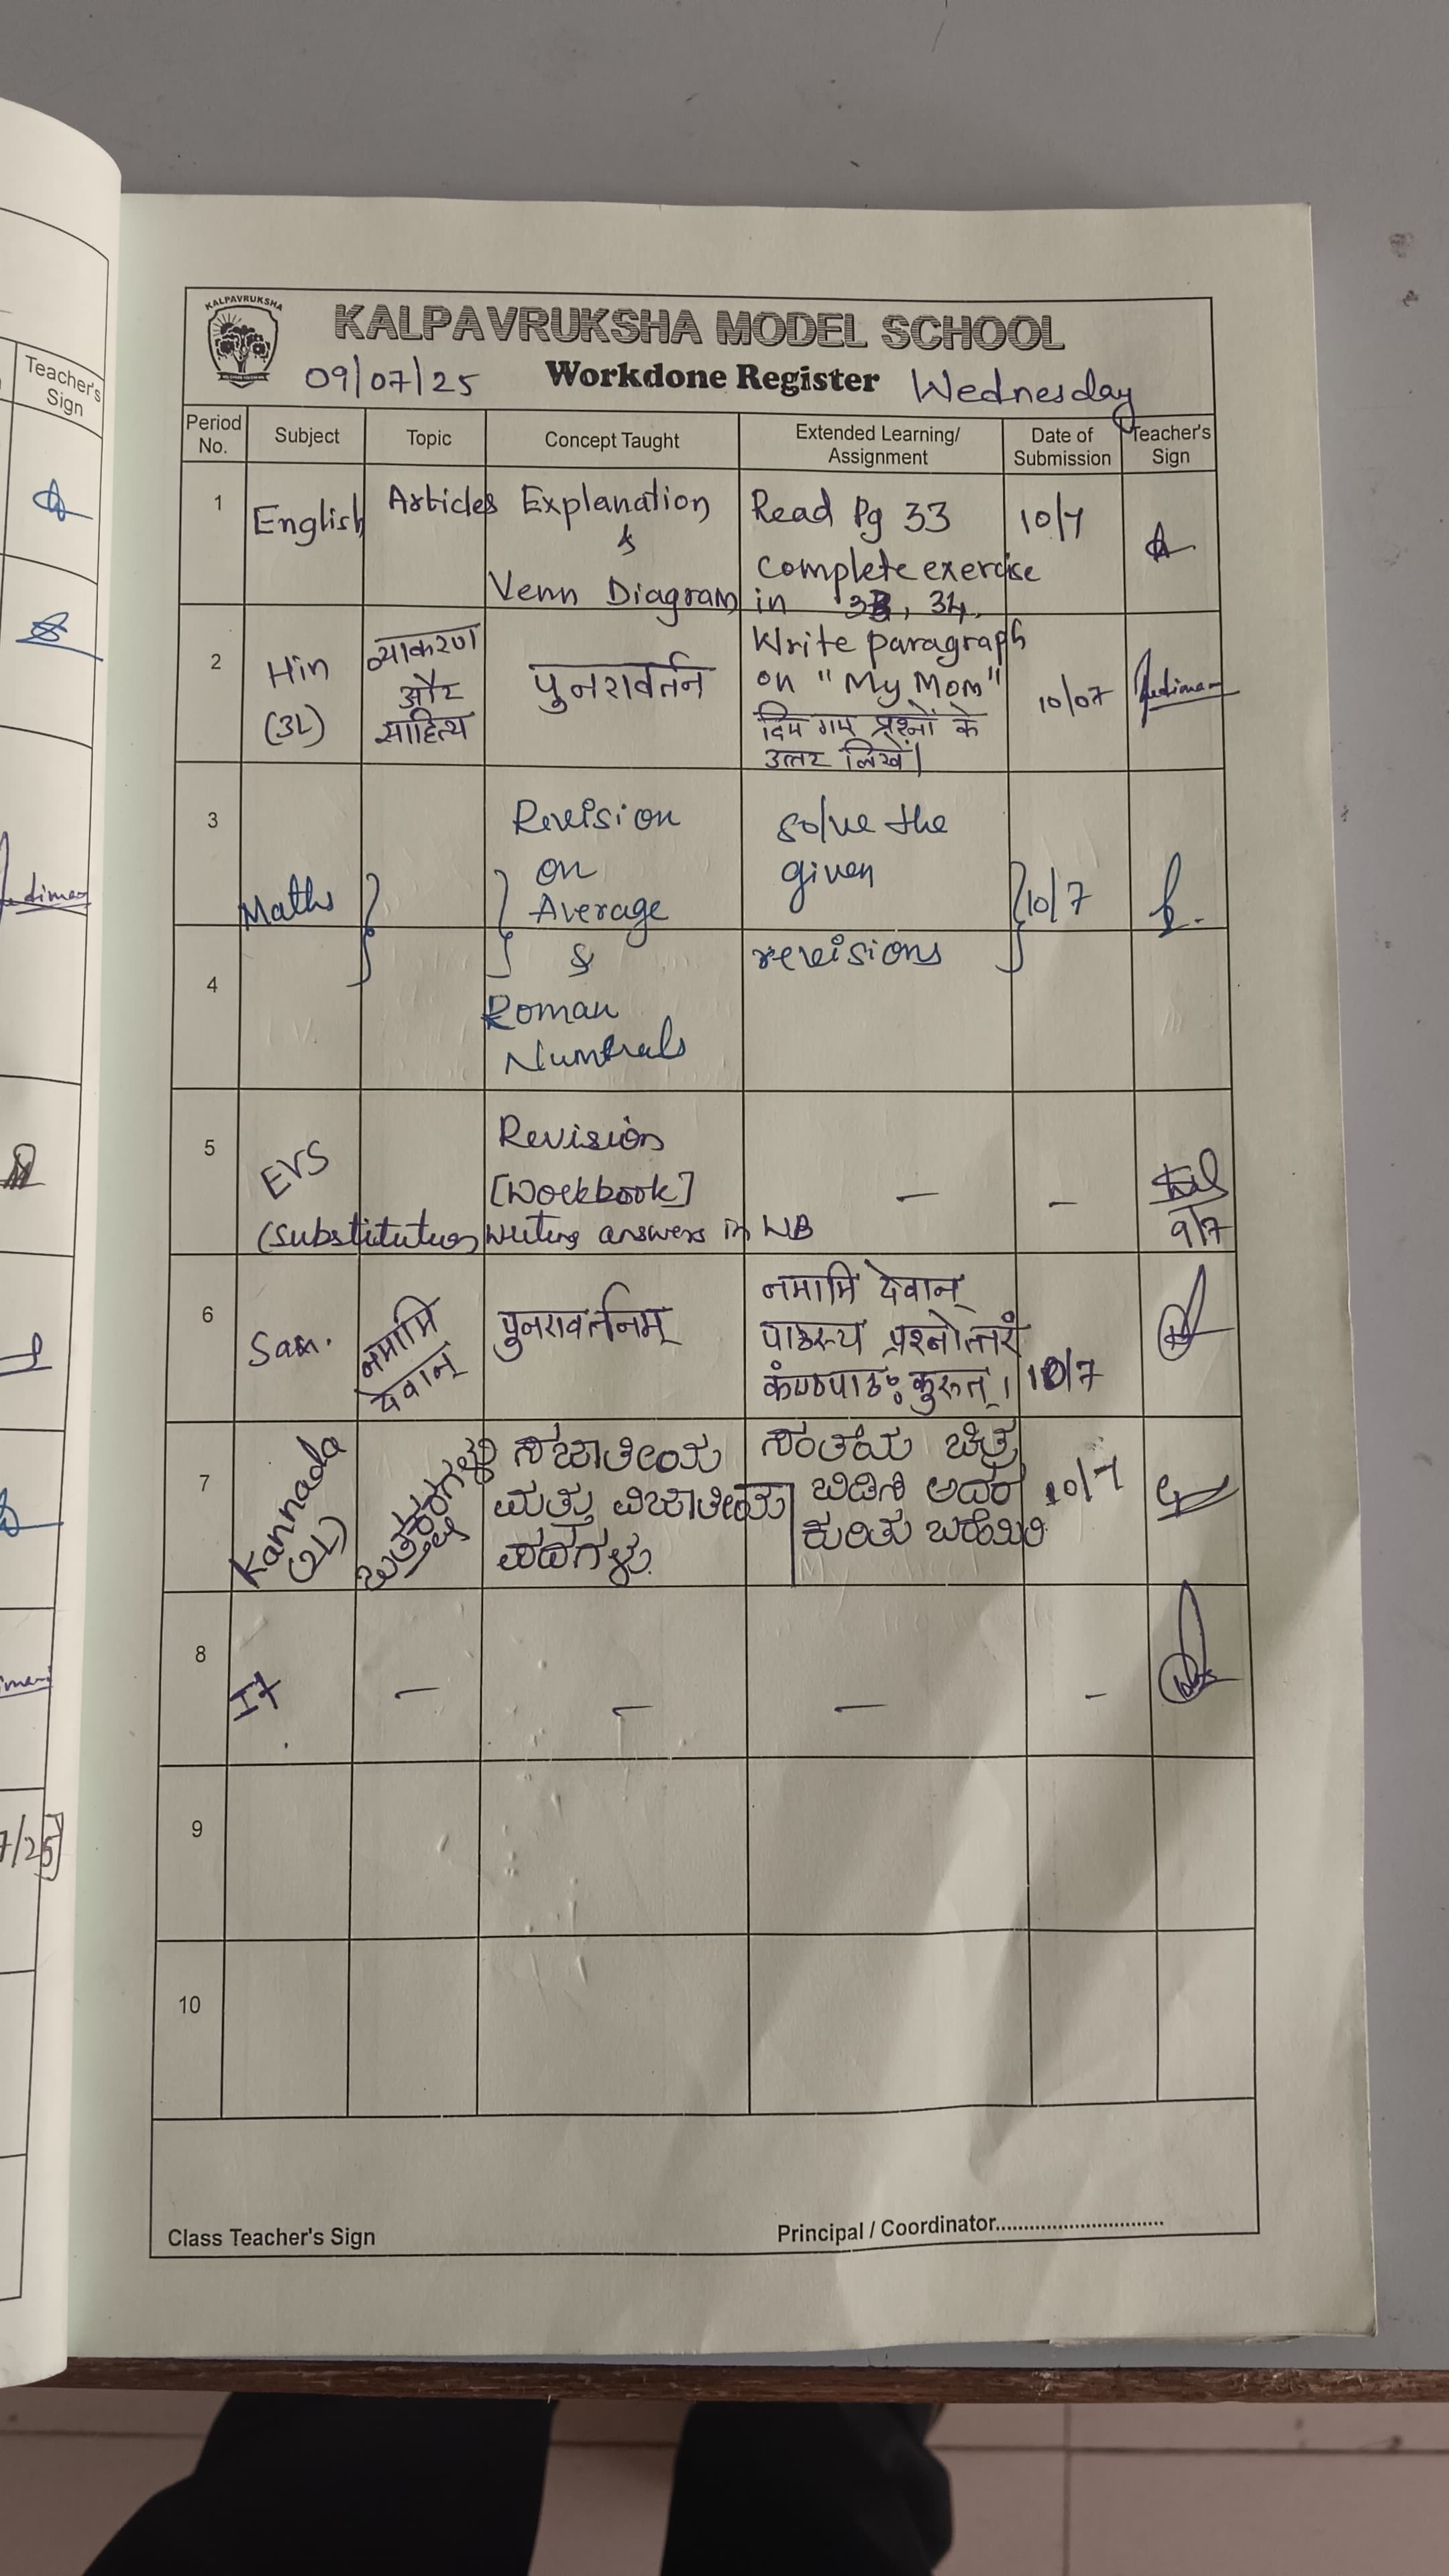 KALPAVRUKSHA
KALPAVRUKSHA MODEL SCHOOL
09/07/25 Workdone Register Wednesday
Teacher's Sign
Period No. Subject Topic Concept Taught Extended Learning/ Assignment Date of Submission Teacher's Sign
1 English Articles Explanation Read Pg 33 10/7
&
complete exercise
Venn Diagram in 33, 34.
2 Hin व्याकरण Write paragraph
और पुनरावर्तन on "My Mom" 10/07
(3L) साहित्य दिए गए प्रश्नों के
उत्तर लिखें।
3 Revision solve the
on given
Maths Average 10/7
4 & revisions
Roman
Numerals
5 EVS Revision
[Workbook] — —
(Substitution) Writing answers in WB 9/7
6 Sam. नमामि देवान् पुनरावर्तनम् नमामि देवान्
पाठस्य प्रश्नोत्तरं
कंण्ठपाठः कुरुत्। 10/7
7 Kannada (2L) ಒತ್ತಕ್ಷರಗಳು ಸಜಾತೀಯ ಸಂತೆಯ ಚಿತ್ರ
ಮತ್ತು ವಿಜಾತೀಯ ಬಿಡಿಸಿ ಅದರ 10/7
ಪದಗಳು. ಕುರಿತು ಬರೆಯಿರಿ
8 IT — — — —
9
10
7/25]
Class Teacher's Sign Principal / Coordinator..............................